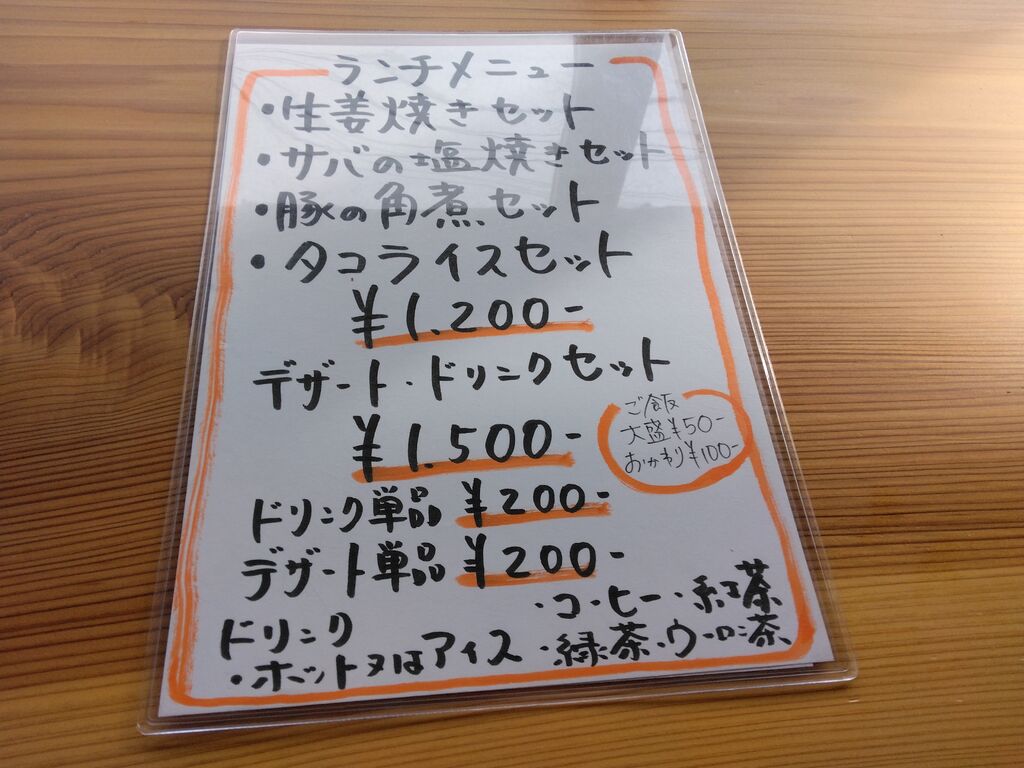 ランチメニュー
・生姜焼きセット
・サバの塩焼きセット
・豚の角煮セット
・タコライスセット
¥1.200-
デザート・ドリンクセット
¥1.500-
ご飯
大盛¥50-
おかわり¥100-
ドリンク単品 ¥200-
デザート単品 ¥200-
ドリンク
・ホット又はアイス
・コーヒー・紅茶
・緑茶・ウーロン茶